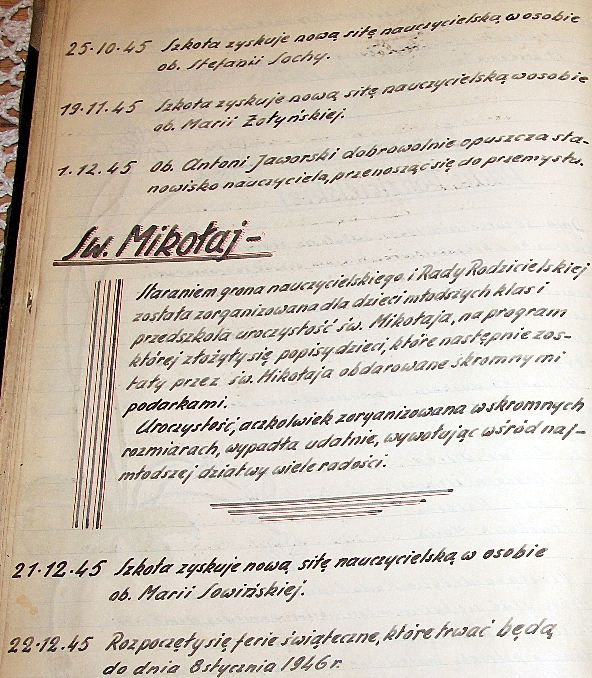 25·10·45 Szkoła zyskuje nową siłę nauczycielską w osobie
ob. Stefanii Sochy.
19.11.45 Szkoła zyskuje nową siłę nauczycielską w osobie
ob. Marii Żołyńskiej.
1.12.45 Ob. Antoni Jaworski dobrowolnie opuszcza sta-
nowisko nauczyciela, przenosząc się do przemysłu.
Św. Mikołaj -
Staraniem grona nauczycielskiego i Rady Rodzicielskiej
została zorganizowana dla dzieci młodszych klas i
przedszkola uroczystość św. Mikołaja, na program
której złożyły się popisy dzieci, które następnie zos-
tały przez św. Mikołaja obdarowane skromnymi
podarkami.
Uroczystość, aczkolwiek zorganizowana w skromnych
rozmiarach, wypadła udatnie, wywołując wśród naj-
młodszej dziatwy wiele radości.
21·12·45 Szkoła zyskuje nową siłę nauczycielską w osobie
ob. Marii Sowińskiej.
22·12·45 Rozpoczęły się ferie świąteczne, które trwać będą
do dnia 8 stycznia 1946 r.